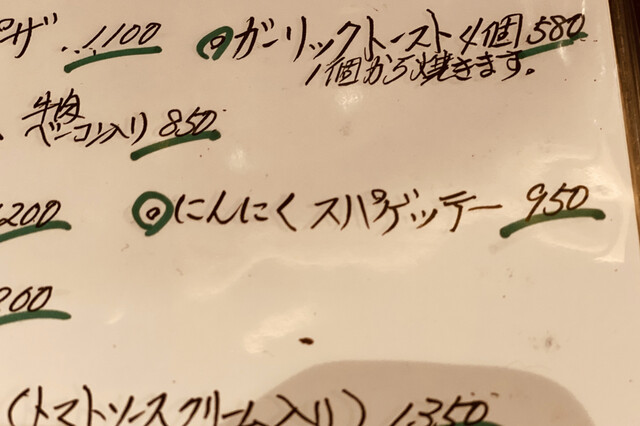 ピザ...1100
ガーリックトースト4個580
1個から焼きます。
ベーコン入り850
200
にんにくスパゲッテー 950
00
(トマトソースクリーム入り) 1,350